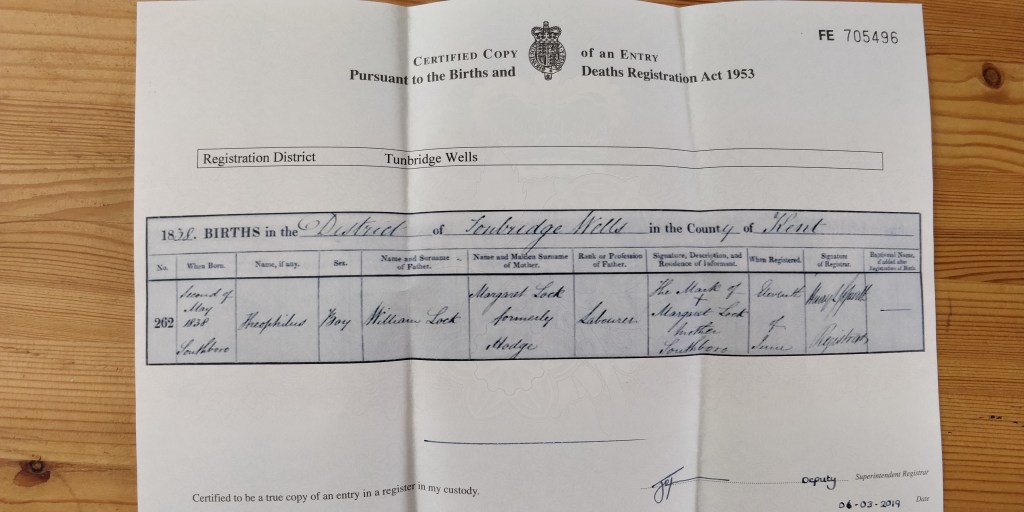 FE 705496
CERTIFIED COPY of an ENTRY
Pursuant to the Births and Deaths Registration Act 1953
Registration District Tunbridge Wells
1838. BIRTHS in the District of Tonbridge Wells in the County of Kent
No.
When Born.
Name, if any.
Sex.
Name and Surname
of Father.
Name and Maiden Surname
of Mother.
Rank or Profession
of Father.
Signature, Description, and
Residence of Informant.
When Registered.
Signature
of Registrar.
Baptismal Name,
if added after
Registration of Birth.
262
Second of
May
1838
Southboro
Theophilus
Boy
William Lock
Margaret Lock
formerly
Hodge
Labourer
The Mark of
+
Margret Lock
Mother
Southboro
Eleventh
of
June
Registrar
Certified to be a true copy of an entry in a register in my custody.
Deputy Superintendent Registrar
06-03-2019 Date